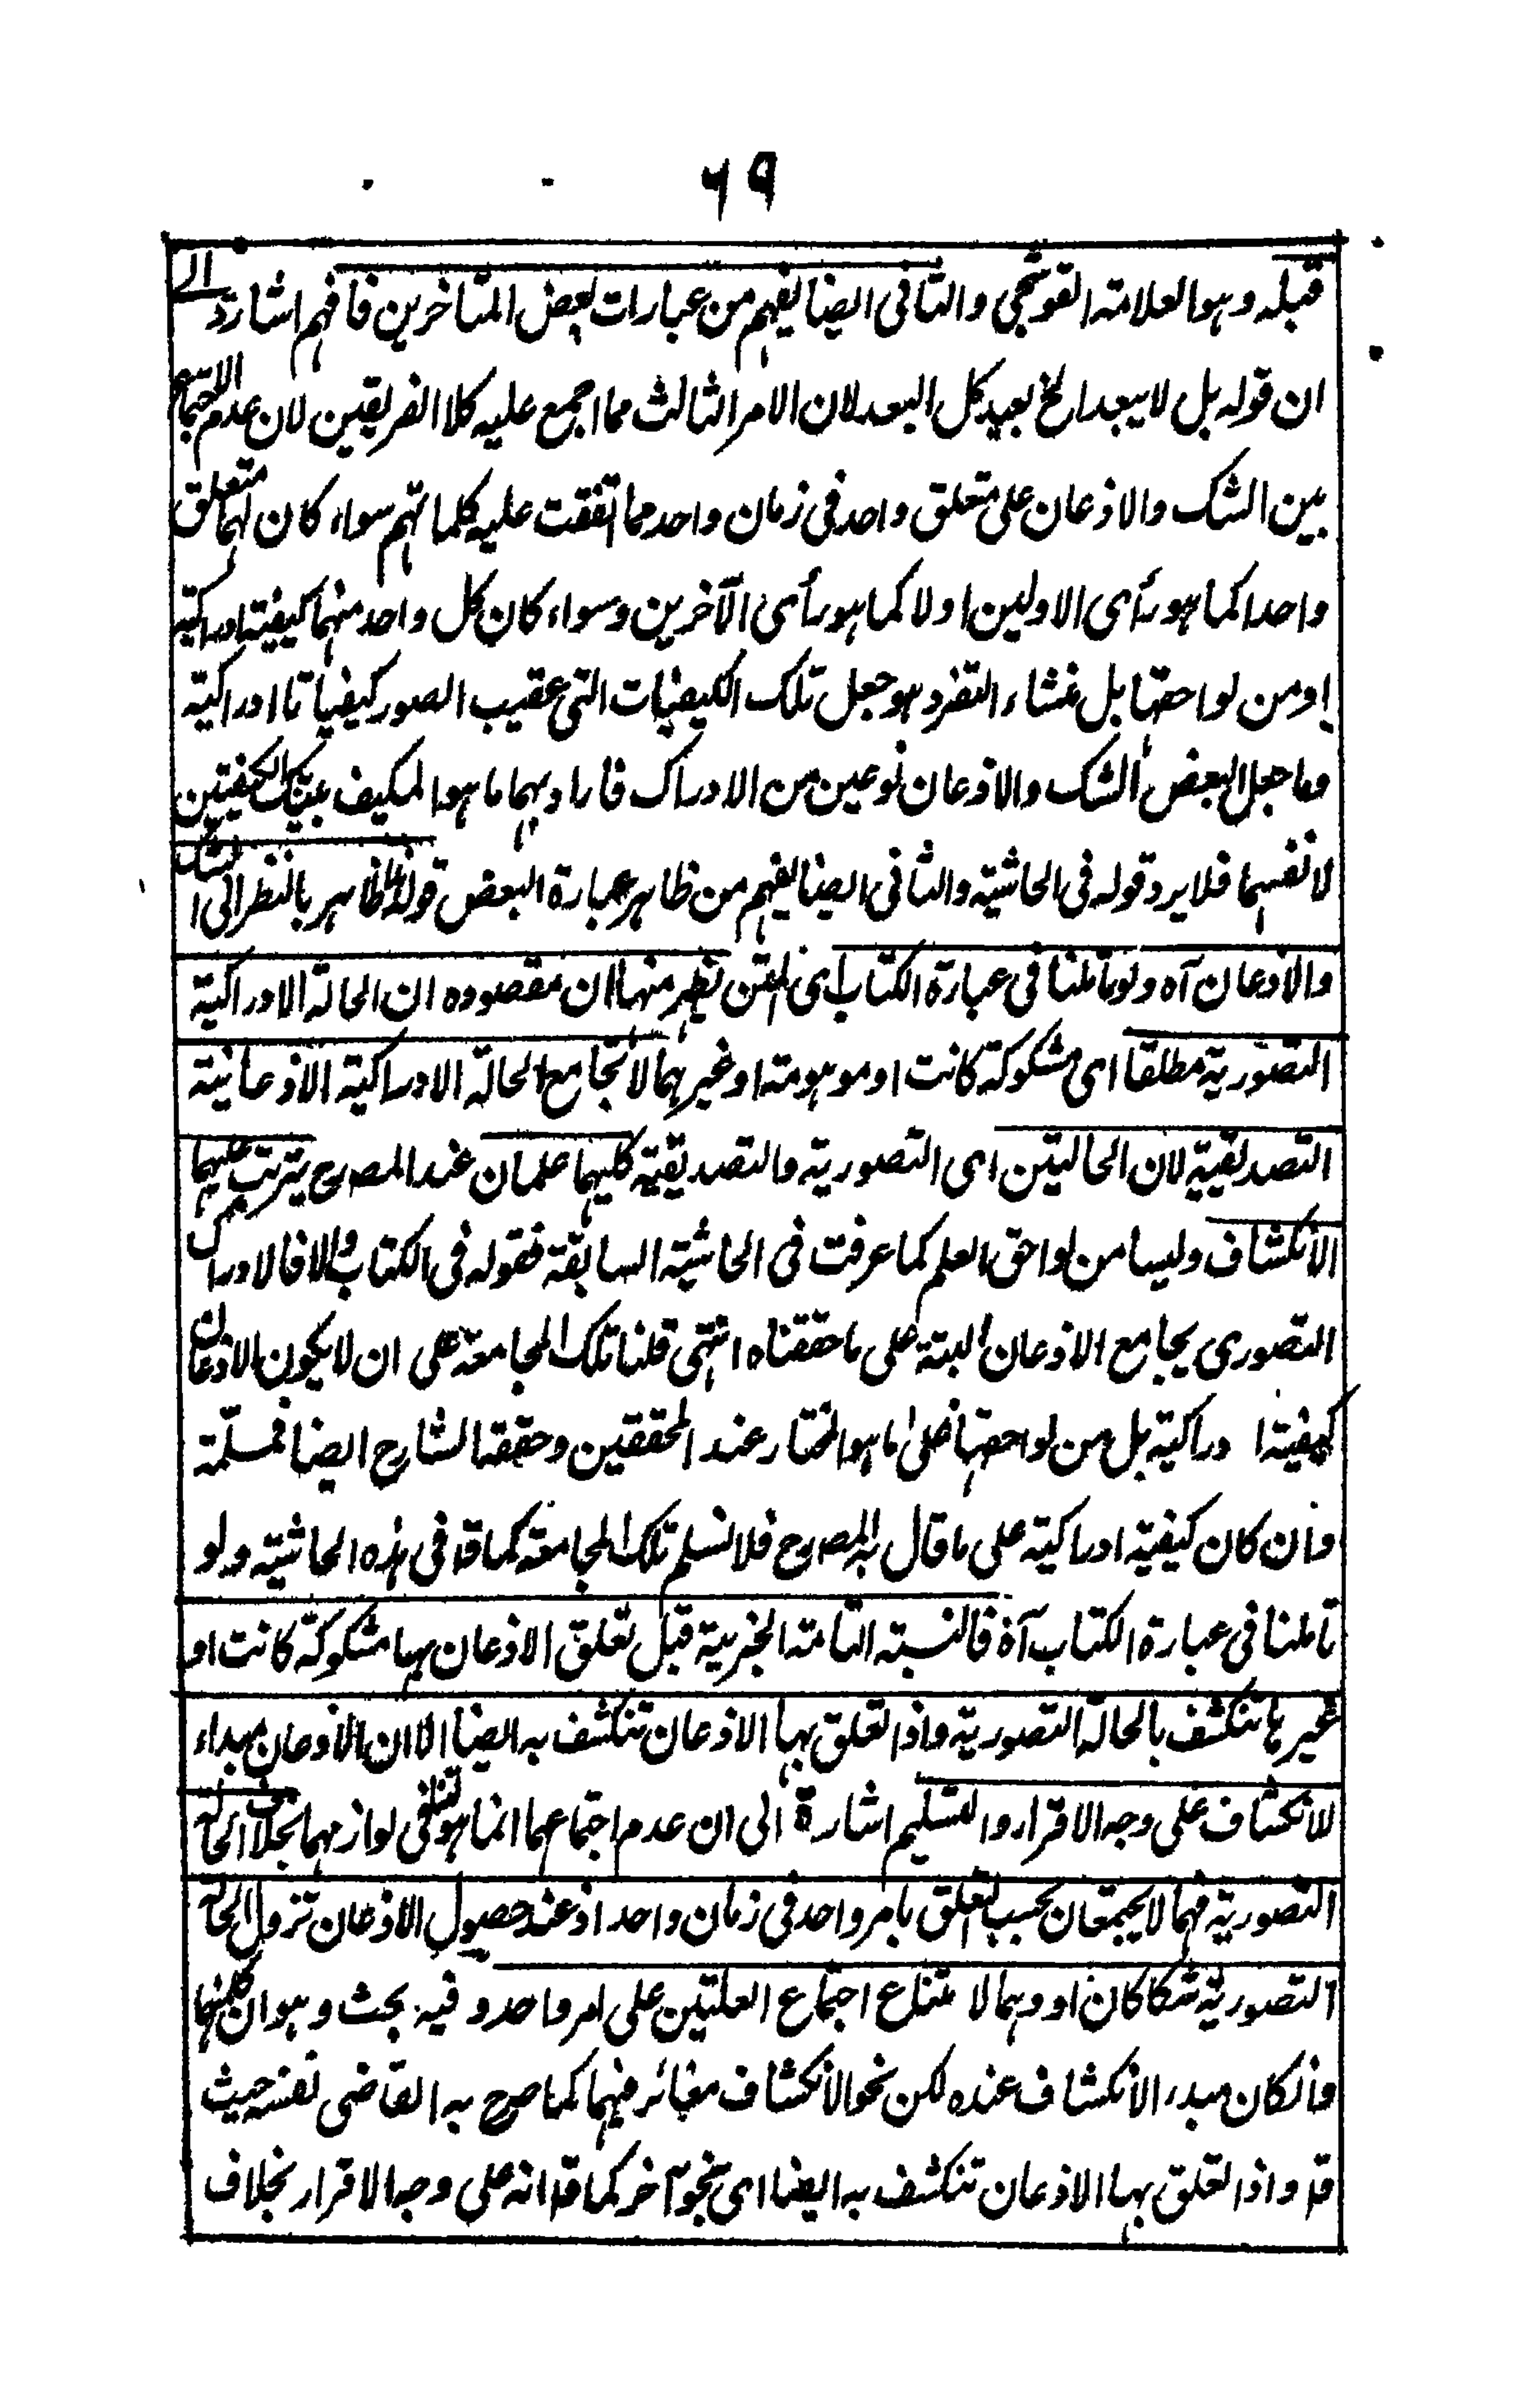 ٦٩
قبله وهو العلامة القوشجي والثاني ايضا يفهم من عبارات بعض المتاخرين فافهم اشارة الى
ان قوله بل لا يبعد الخ بعيد كل البعد لان الامر الثالث مما اجمع عليه كلا الفريقين لان عدم الاجتماع
بين الشك والاذعان على متعلق واحد في زمان واحد مما اتفقت عليه كلماتهم سواء كان لهما متعلق
واحدا كما هو رأى الاولين او لا كما هو رأى الآخرين وسواء كان كل واحد منهما كيفية ادراكية
او من لواحقها بل منشاء التفرد هو جعل تلك الكيفيات التى عقيب الصور كيفياتا ادراكية
وما جعل البعض الشك والاذعان نوعين من الادراك فاراد بهما ما هو المكيف بتينك الكيفيتين
لا نفسهما فلا يرد قوله في الحاشية والثاني ايضا يفهم من ظاهر عبارة البعض قوله فالظاهر بالنظر الى الشك
والاذعان آه ولو تاملنا في عبارة الكتاب اى المتن نظهر منها ان مقصوده ان الحالة الادراكية
التصورية مطلقا اى مشكوكة كانت او موهومة او غيرهما لا تجامع الحالة الادراكية الاذعانية
التصديقية لان الحالتين اى التصورية والتصديقية كليهما علمان عند المصرح يترتب عليهما
الانكشاف وليسا من لواحق العلم كما عرفت في الحاشية السابقة فقوله في الكتاب والا فالادراك
التصورى يجامع الاذعان البتة على ما حققناه انتهى قلنا تلك المجامعة على ان لا يكون الاذعان
كيفية ادراكية بل من لواحقها فعلى ما هو المختار عند المحققين وحققه الشارح ايضا فمسلمة
وان كان كيفية ادراكية على ما قال به المصرح فلا نسلم تلك المجامعة كما قد في هذه الحاشية ولو
تاملنا في عبارة الكتاب آه فالنسبة التامة الخبرية قبل تعلق الاذعان بها مشكوكة كانت او
غيرها تنكشف بالحالة التصورية واذا تعلق بها الاذعان تنكشف به ايضا الا ان الاذعان مبداء
للانكشاف على وجه الاقرار والتسليم اشارة الى ان عدم اجتماعهما انما هو لتنافى لوازمهما بخلاف الحالة
التصورية فهما لا يجتمعان بحسب التعلق بامر واحد في زمان واحد اذ عند حصول الاذعان تزول الحالة
التصورية شكا كان او وهما لامتناع اجتماع العلتين على امر واحد وفيه بحث وهو ان كليهما
وانكان مبدء الانكشاف عنده لكن نحو الانكشاف مغائر فيهما كما صرح به القاضي نفسه حيث
قد واذا تعلق بها الاذعان تنكشف به ايضا اى بنحو آخر كما قد انه على وجه الاقرار بخلاف